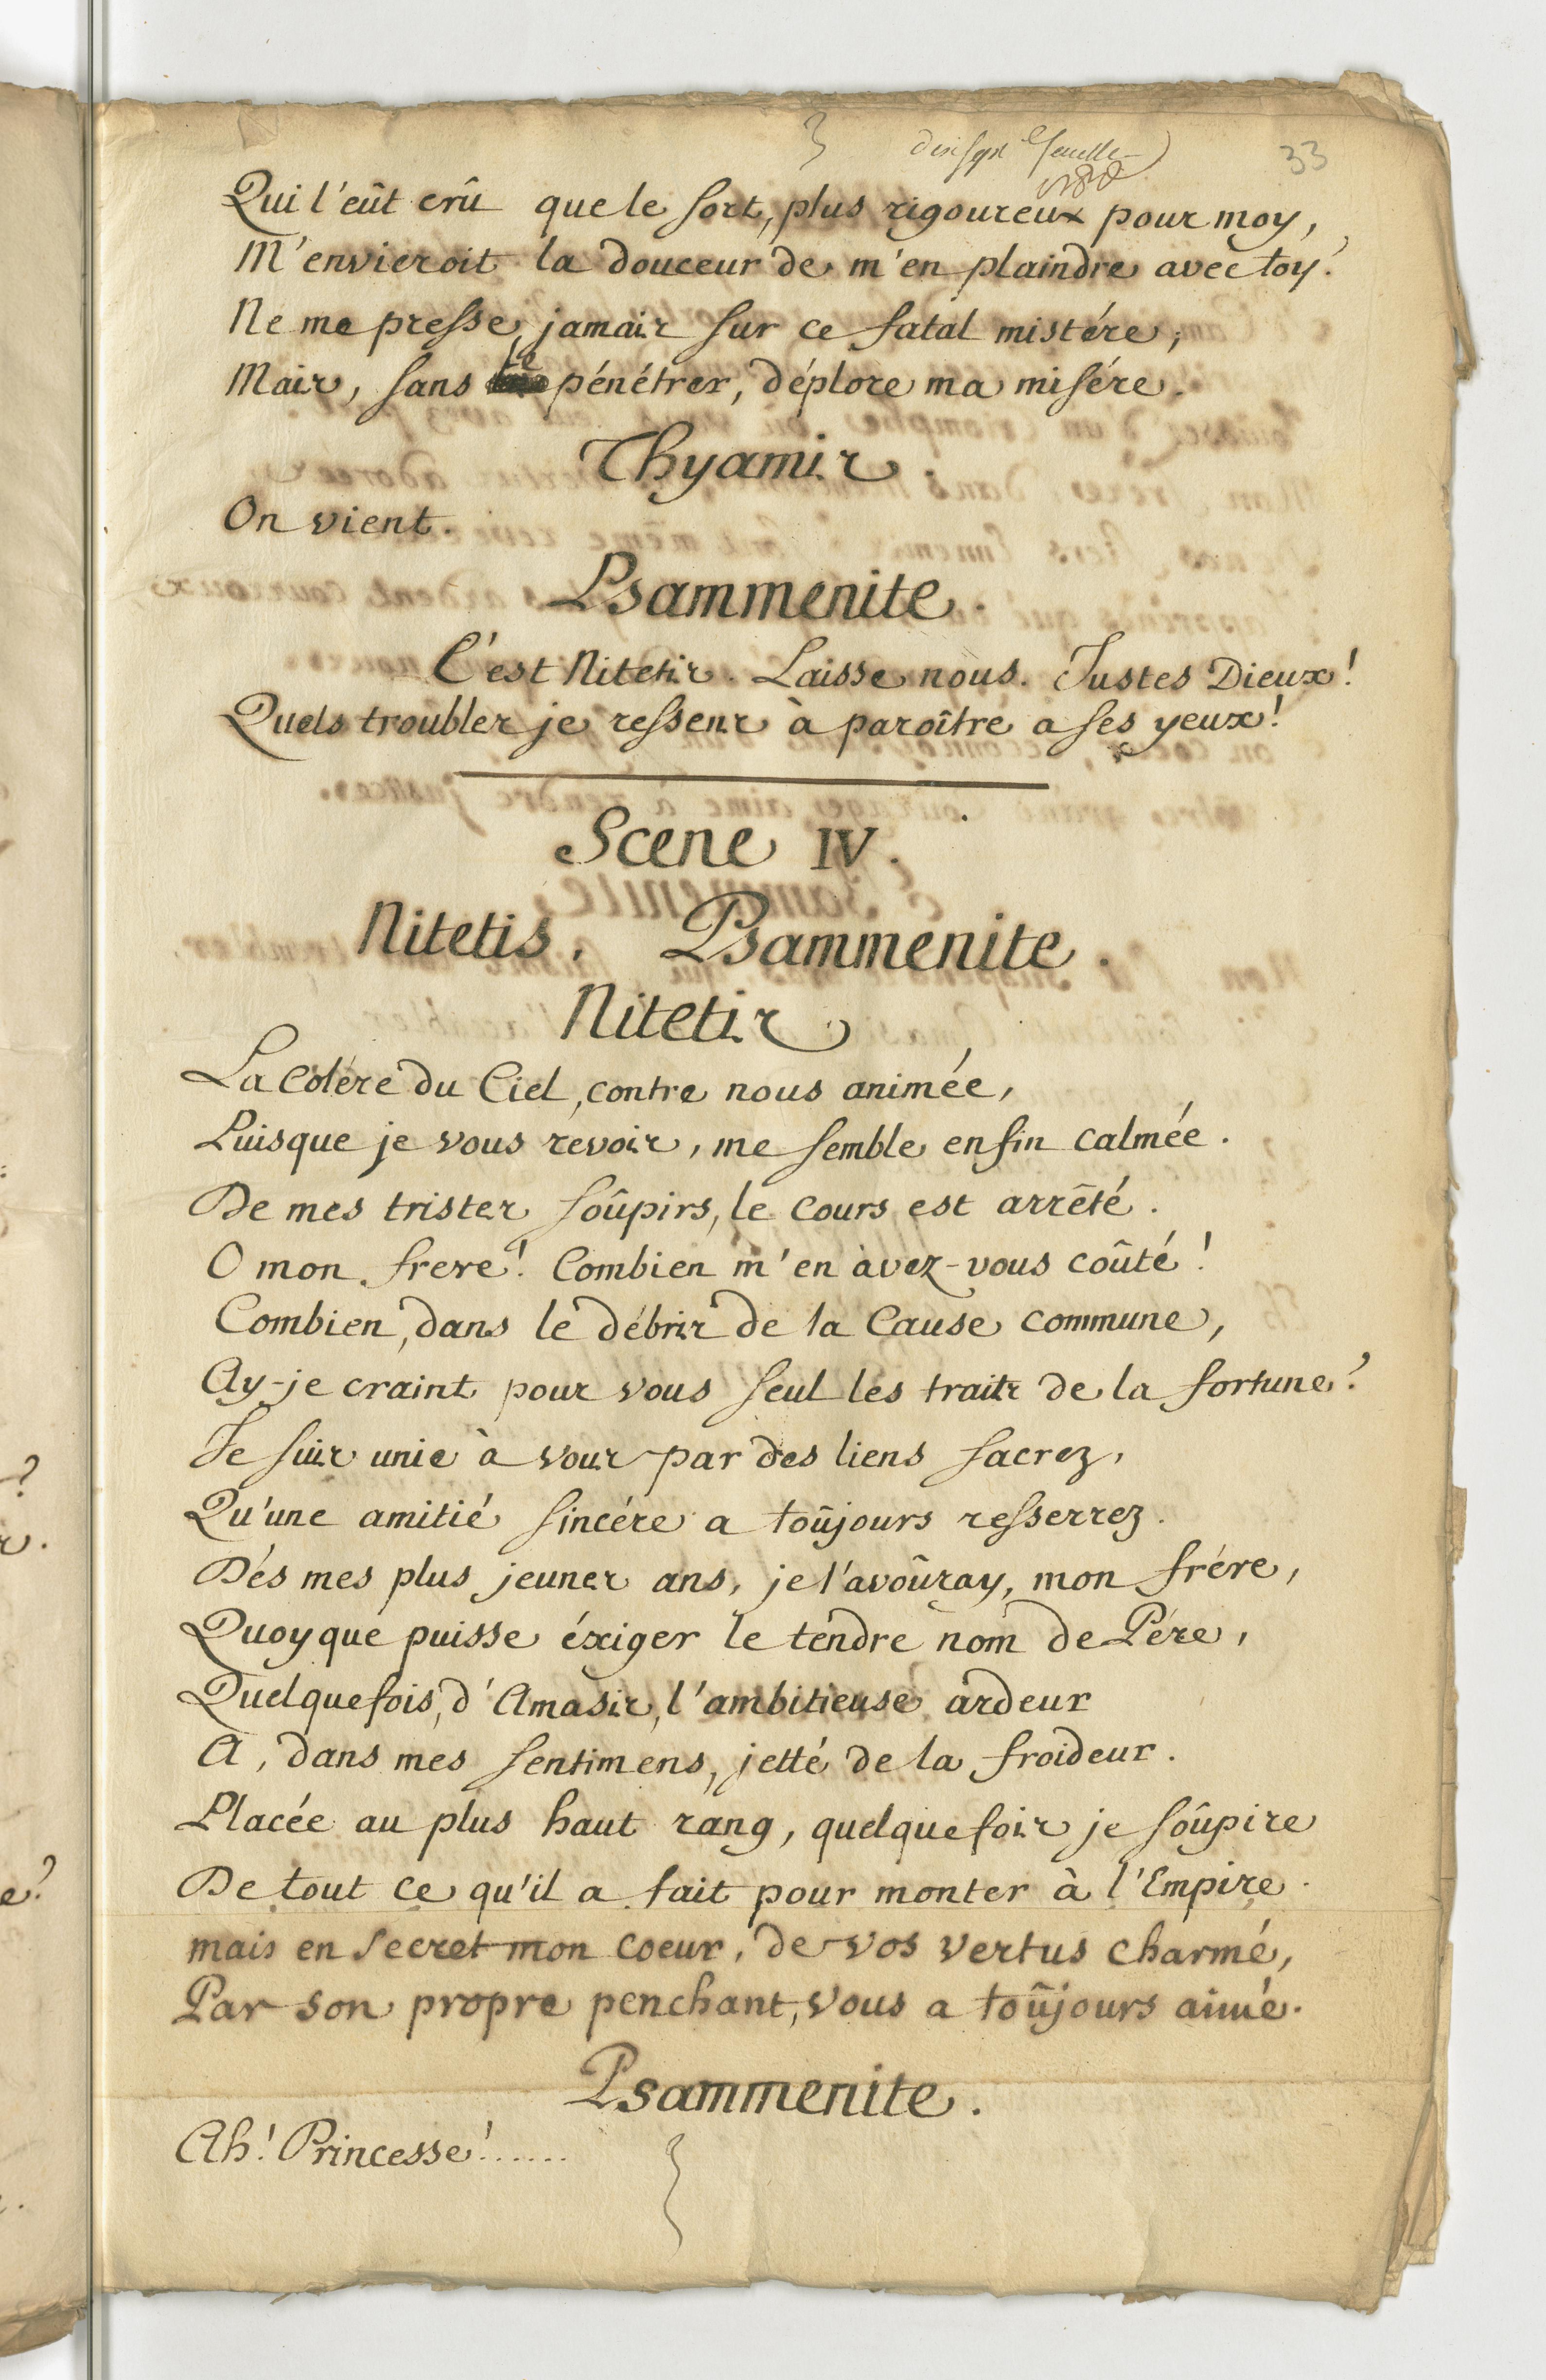 dixsept.e feuille
33
Qui l'eût crû que le sort, plus rigoureux pour moy,
M'envieroit la douceur de m'en plaindre avec toy?
Ne me presse jamais sur ce fatal mistére;
Mais, sans le pénétrer, déplore ma misére.
Thyamis.
On vient.
Psammenite.
C'est Nitetis. Laisse nous. Justes Dieux!
Quels troubles je ressens à paroître a ses yeux!
Scene IV.
Nitetis, Psammenite.
Nitetis
La Colére du Ciel, contre nous animée,
Puisque je vous revois, me semble enfin calmée.
De mes tristes soûpirs, le cours est arrêté.
O mon frere! Combien m'en avez-vous coûté!
Combien, dans le débris de la Cause commune,
Ay-je craint pour vous seul les traits de la fortune?
Je suis unie à vous par des liens sacrez,
Qu'une amitié sincére a toûjours resserrez.
Dés mes plus jeunes ans, je l'avoûray, mon frére,
Quoyque puisse éxiger le tendre nom de Pére,
Quelquefois, d'Amasis, l'ambitieuse ardeur
A, dans mes sentimens, jetté de la froideur.
Placée au plus haut rang, quelquefois je soûpire
De tout ce qu'il a fait pour monter à l'Empire.
mais en secret mon coeur, de vos vertus charmé,
Par son propre penchant, vous a toûjours aimé.
Psammenite.
Ah! Princesse!......